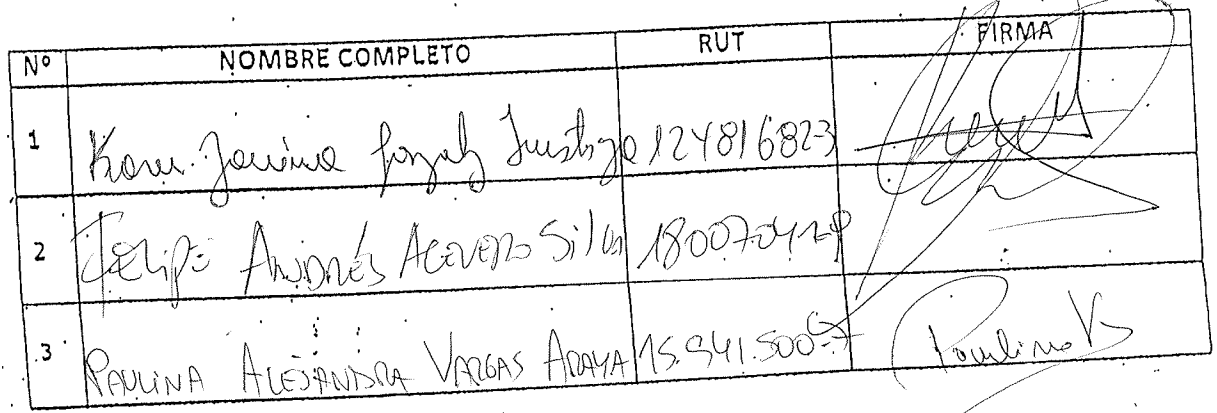 Nº NOMBRE COMPLETO RUT FIRMA
1 Karen Janina González 124816823
2 Felipe Andrés Acevedo Silva
3 PAULINA ALEJANDRA VARGAS ARAYA 15.941.500-7 Paulina V